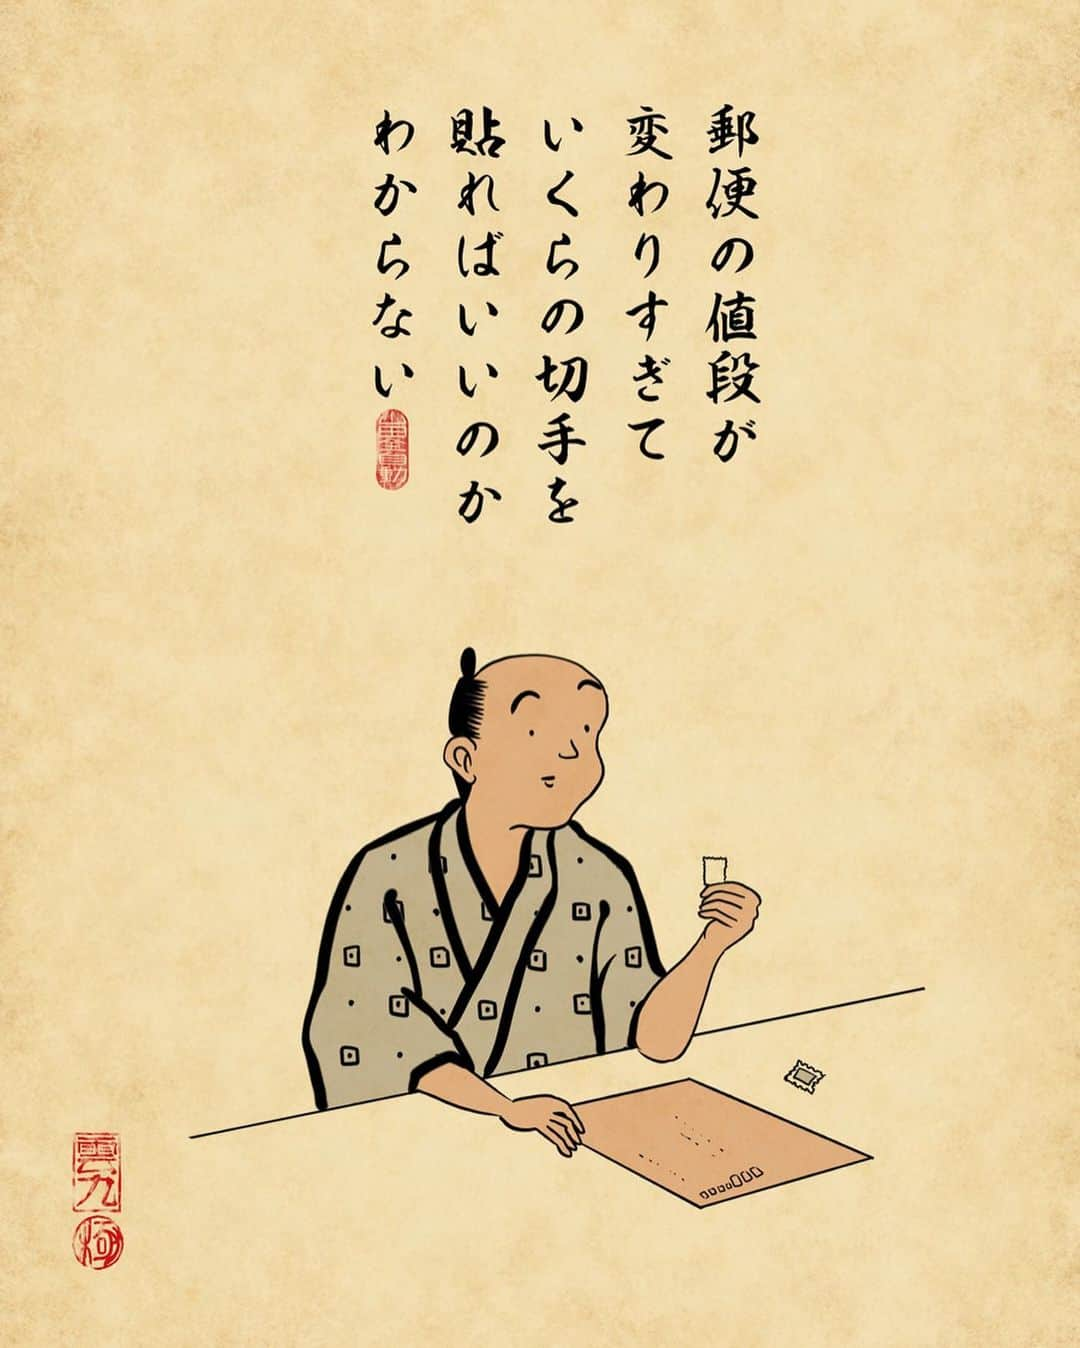 郵便の値段が
変わりすぎて
いくらの切手を
貼ればいいのか
わからない